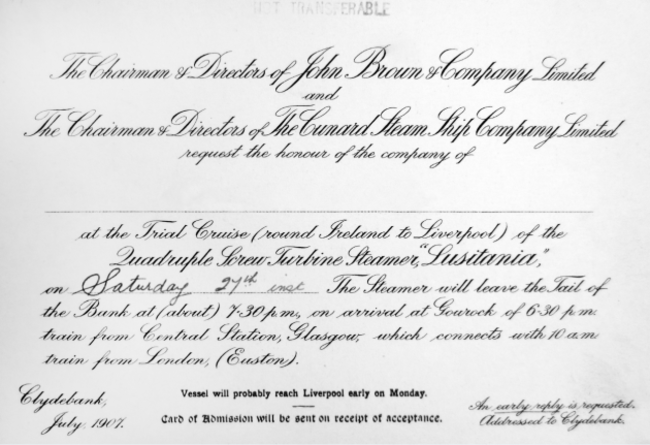 NOT TRANSFERABLE
The Chairman & Directors of John Brown & Company Limited
and
The Chairman & Directors of The Cunard Steam Ship Company Limited
request the honour of the company of
at the Trial Cruise (round Ireland to Liverpool) of the
Quadruple Screw Turbine Steamer, "Lusitania",
on Saturday 27th inst The Steamer will leave the Tail of
the Bank at (about) 7.30 p.m., on arrival at Gourock of 6.30 p.m.
train from Central Station, Glasgow, which connects with 10 a.m
train from London, (Euston).
Clydebank,
July, 1907.
Vessel will probably reach Liverpool early on Monday.
Card of Admission will be sent on receipt of acceptance.
An early reply is requested.
Addressed to Clydebank.